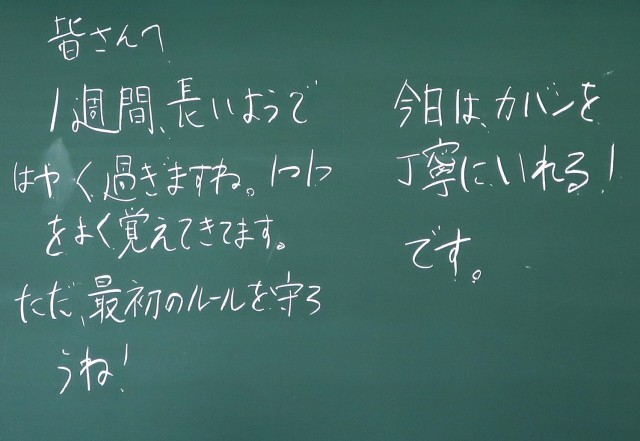 皆さんへ
1週間、長いようで
はやく過ぎますね。1つ1つ
をよく覚えてきてます。
ただ、最初のルールを守ろ
うね!
今日は、カバンを
丁寧にいれる!
です。